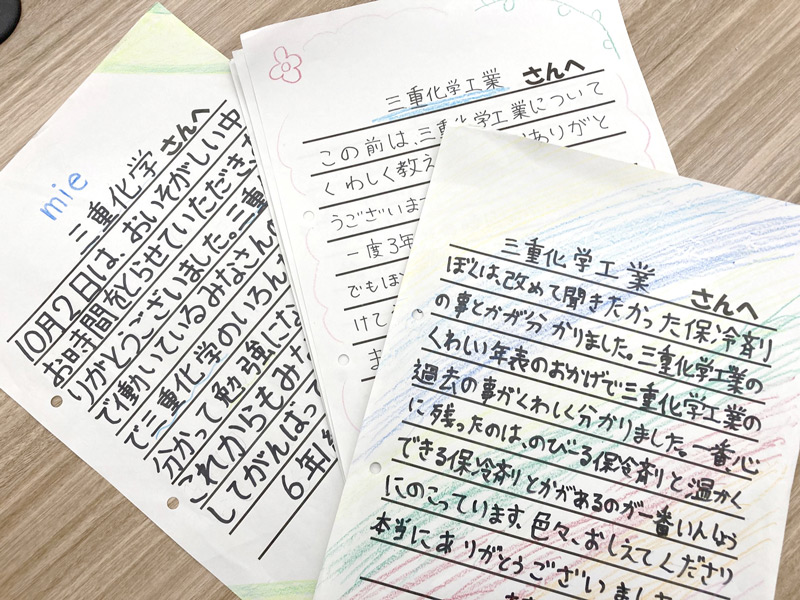 mie
三重化学さんへ
10月2日は、おいそがしい中
お時間をとらせていただき
りがとうございました。三重
で働いているみなさんの
で三重化学のいろん
分かって勉強にな
これからもみな
してがんばって
6年
三重化学工業さんへ
この前は、三重化学工業について
くわしく教え ありがと
うございま
一度3年
でもほ
けて
ま
三重化学工業さんへ
ぼくは、改めて聞きたかった保冷剤
の事とかが分かりました。三重化学工業の
くわしい年表のおかげで三重化学工業の
過去の事がくわしく分かりました。一番心
に残ったのは、のびーる保冷剤と温かく
できる保冷剤とかがあるのが一番いんしょう
にのこっています。色々、おしえてくださり
本当にありがとうございました